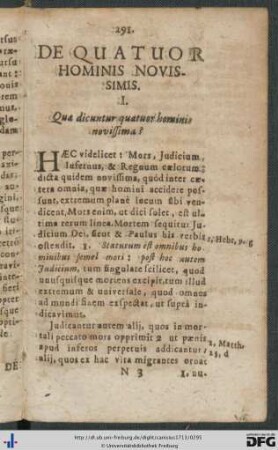 291.
DE QUATUOR
HOMINIS NOVIS-
SIMIS.
I.
Quæ dicuntur quatuor hominis
novissima?
HÆC videlicet: Mors, Judicium,
Infernus, & Regnum cælorum;
dicta quidem novissima, quod inter cæ-
tera omnia, quæ homini accidere pos-
sunt, extremum planè locum sibi ven-
dicent. Mors enim, ut dici solet, est ul-
tima rerum linea. Mortem sequitur Ju-
dicium Dei, sicut & Paulus his verbis
ostendit. 1. Statutum est omnibus ho-
minibus semel mori: post hoc autem
Judicium, tum singulare scilicet, quod
unusquisque moriens excipit, tum illud
extremum & universale, quod omnes
ad mundi finem exspectat, ut suprà in-
dicavimus.
Judicantur autem alij, quos in mor-
tali peccato mors opprimit 2 ut pœnis
apud inferos perpetuis addicantur,
alij, quos ex hac vita migrantes ornat
N 3
1. Hebr, 9. g
2. Matth.
25, d
DE
http://dl.ub.uni-freiburg.de/diglit/canisius1713/0295
© Universitätsbibliothek Freiburg